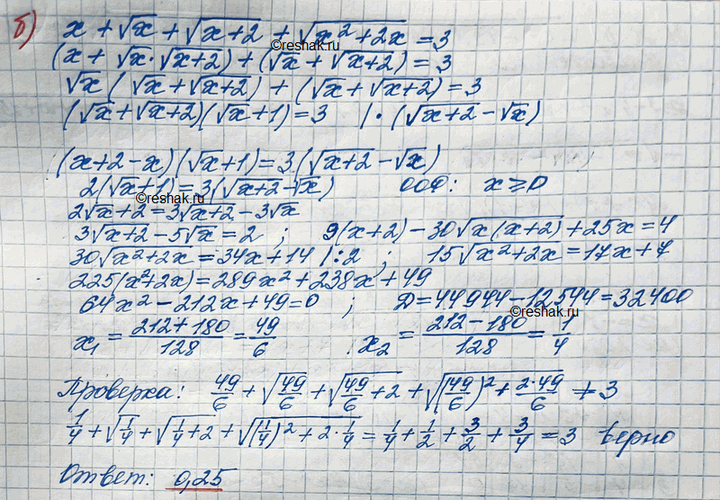 б) x + √x + √x+2 + √x²+2x = 3
(x + √x·√x+2) + (√x + √x+2) = 3
√x (√x + √x+2) + (√x + √x+2) = 3
(√x + √x+2)(√x+1) = 3 | · (√x+2 − √x)
(x+2−x)(√x+1) = 3(√x+2 − √x)
2(√x+1) = 3(√x+2 − √x) ООФ: x ≥ 0
2√x + 2 = 3√x+2 − 3√x
3√x+2 − 5√x = 2 ; 9(x+2) − 30√x(x+2) + 25x = 4
30√x²+2x = 34x + 14 | :2 ; 15√x²+2x = 17x + 7
225(x²+2x) = 289x² + 238x + 49
64x² − 212x + 49 = 0 ; D = 44944 − 12544 = 32400
x₁ = (212+180)/128 = 49/6 . x₂ = (212−180)/128 = 1/4
Проверка: 49/6 + √49/6 + √49/6+2 + √(49/6)² + 2·49/6 ≠ 3
1/4 + √1/4 + √1/4+2 + √(1/4)² + 2·1/4 = 1/4 + 1/2 + 3/2 + 3/4 = 3 верно
Ответ: 0,25
©reshak.ru
©reshak.ru
©reshak.ru